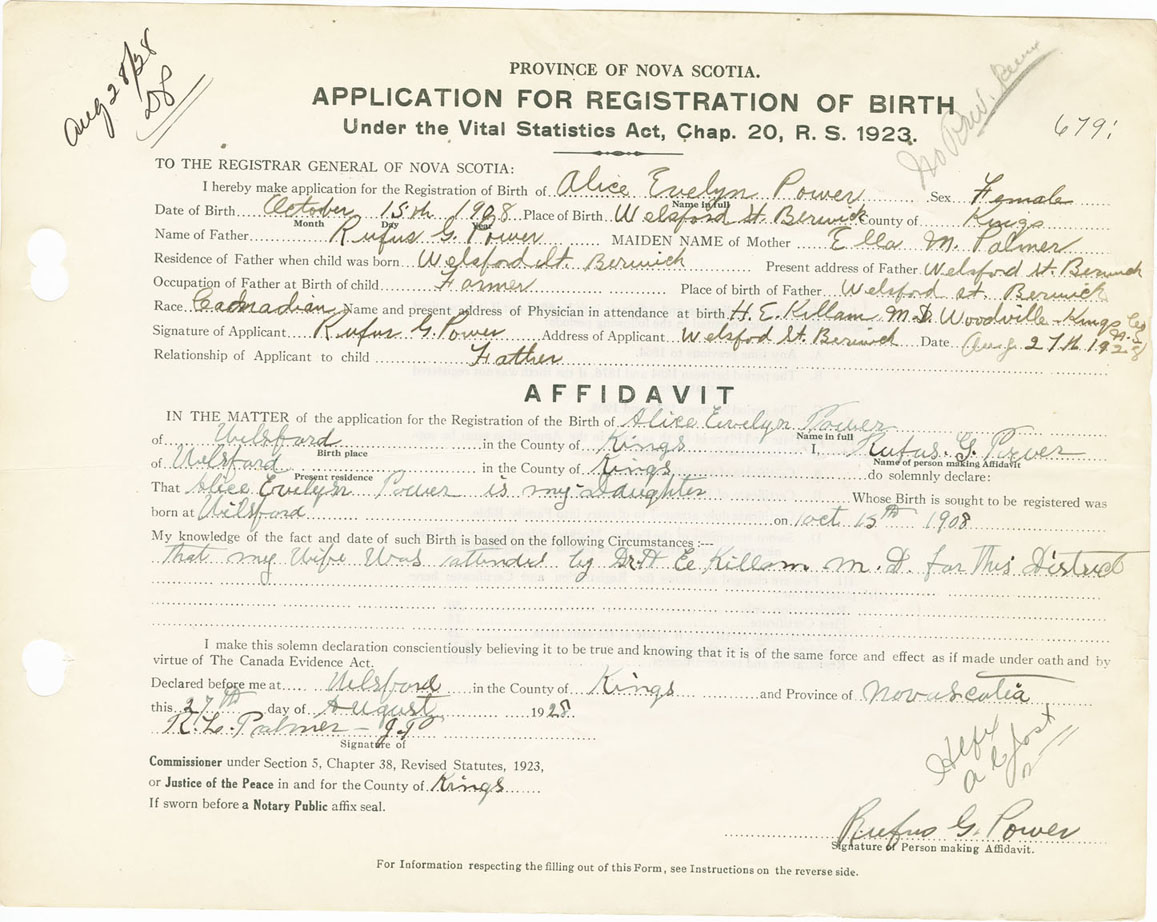 Aug 28/28
PROVINCE OF NOVA SCOTIA.
APPLICATION FOR REGISTRATION OF BIRTH
Under the Vital Statistics Act, Chap. 20, R. S. 1923.
679
TO THE REGISTRAR GENERAL OF NOVA SCOTIA:
I hereby make application for the Registration of Birth of Alice Evelyn Power Sex Female
Name in full
Date of Birth October 15th 1908 Place of Birth Welsford st. Berwick County of Kings
Month Day Year
Name of Father Rufus G. Power MAIDEN NAME of Mother Ella M. Palmer
Residence of Father when child was born Welsford St. Berwick Present address of Father Welsford st. Berwick
Occupation of Father at Birth of child Farmer Place of birth of Father Welsford st. Berwick
Race Cadnadian Name and present address of Physician in attendance at birth H. E. Killam M.D. Woodville Kings Co N.S
Signature of Applicant Rufus G. Power Address of Applicant Welsfod St. Berwick Date Aug. 27th 1928
Relationship of Applicant to child Father
AFFIDAVIT
IN THE MATTER of the application for the Registration of the Birth of Alice Evelyn Power
Name in full
of Welsford in the County of Kings I, Rufus. G. Power
Birth place Name of person making Affidavit
of Welsford in the County of Kings do solemnly declare:
Present residence
That Alice Evelyn Power is my Daughter Whose Birth is sought to be registered was
born at Wilsford on Oct 15th 1908
My knowledge of the fact and date of such Birth is based on the following Circumstances :—
that my Wife Was attended by Dr. H E. Killam M. D. for This District
I make this solemn declaration conscientiously believing it to be true and knowing that it is of the same force and effect as if made under oath and by
virtue of The Canada Evidence Act.
Declared before me at Welsford in the County of Kings and Province of Nova scotia
this 27th day of August 1928.
R. L. Palmer - J.P
Signature of
Commissioner under Section 5, Chapter 38, Revised Statutes, 1923,
or Justice of the Peace in and for the County of Kings
If sworn before a Notary Public affix seal.
Rufus G. Power
Signature of Person making Affidavit.
For Information respecting the filling out of this Form, see Instructions on the reverse side.